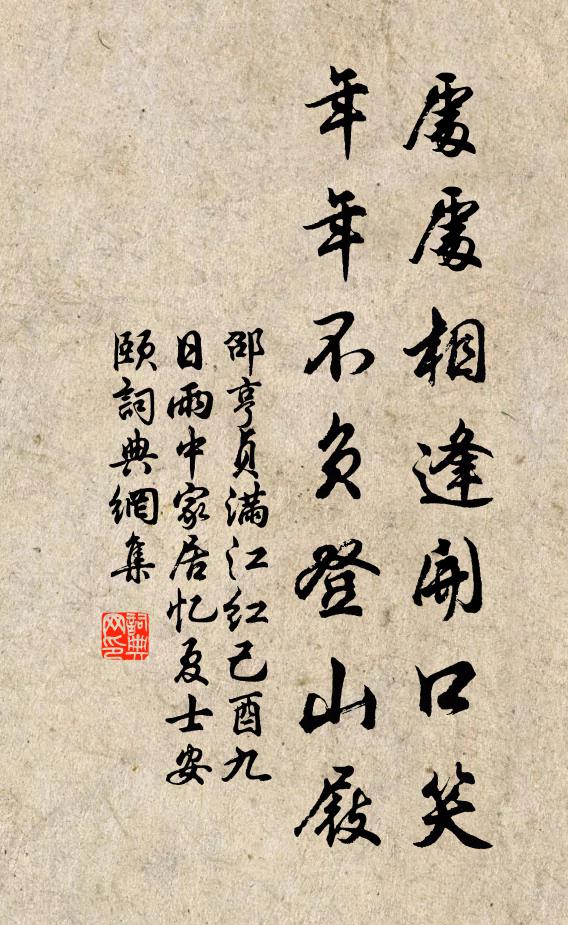 處處相逢開口笑
年年不負登山屐
邵亨貞滿江紅己酉九
日雨中家居忆夏士安
頤詞典網集
詞典
网印